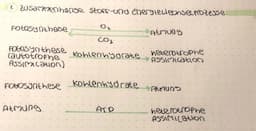 Zusammenhänge Stoff- und Energiewechselprozesse
Fotosynthese O₂ Atmung
CO₂
Fotosynthese (autotrophe Assimilation) Kohlenhydrate heterotrophe Assimilation
Fotosynthese Kohlenhydrate Atmung
Atmung ATP heterotrophe Assimilation